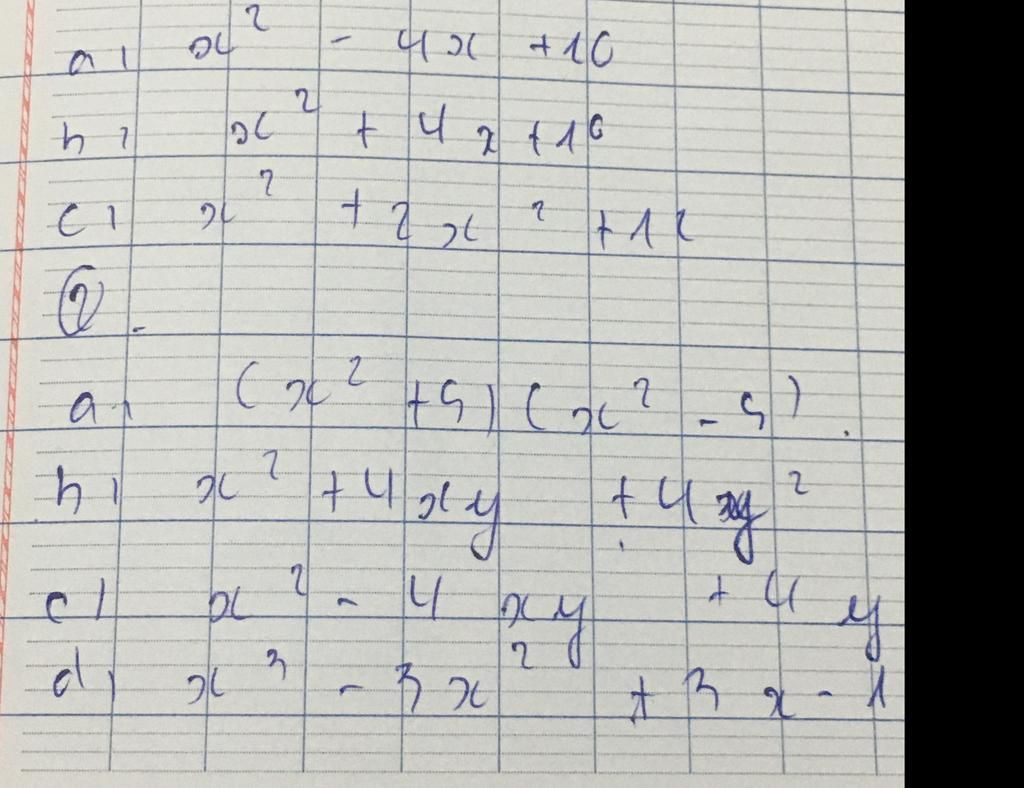 a, x² - 4x + 10
b, x² + 4x + 10
c, x² + 2x² + 1
②.
a, (x² + 5)(x² - 5).
b, x² + 4xy + 4y²
c, x² - 4xy + 4y
d, x³ - 3x² + 3x - 1